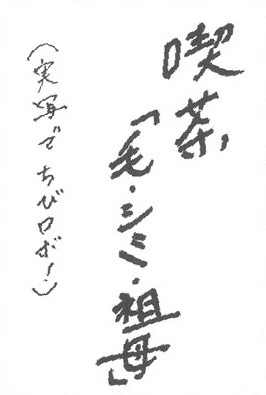 喫茶
「毛・シミ・祖母」
(実写でちびロボ!)